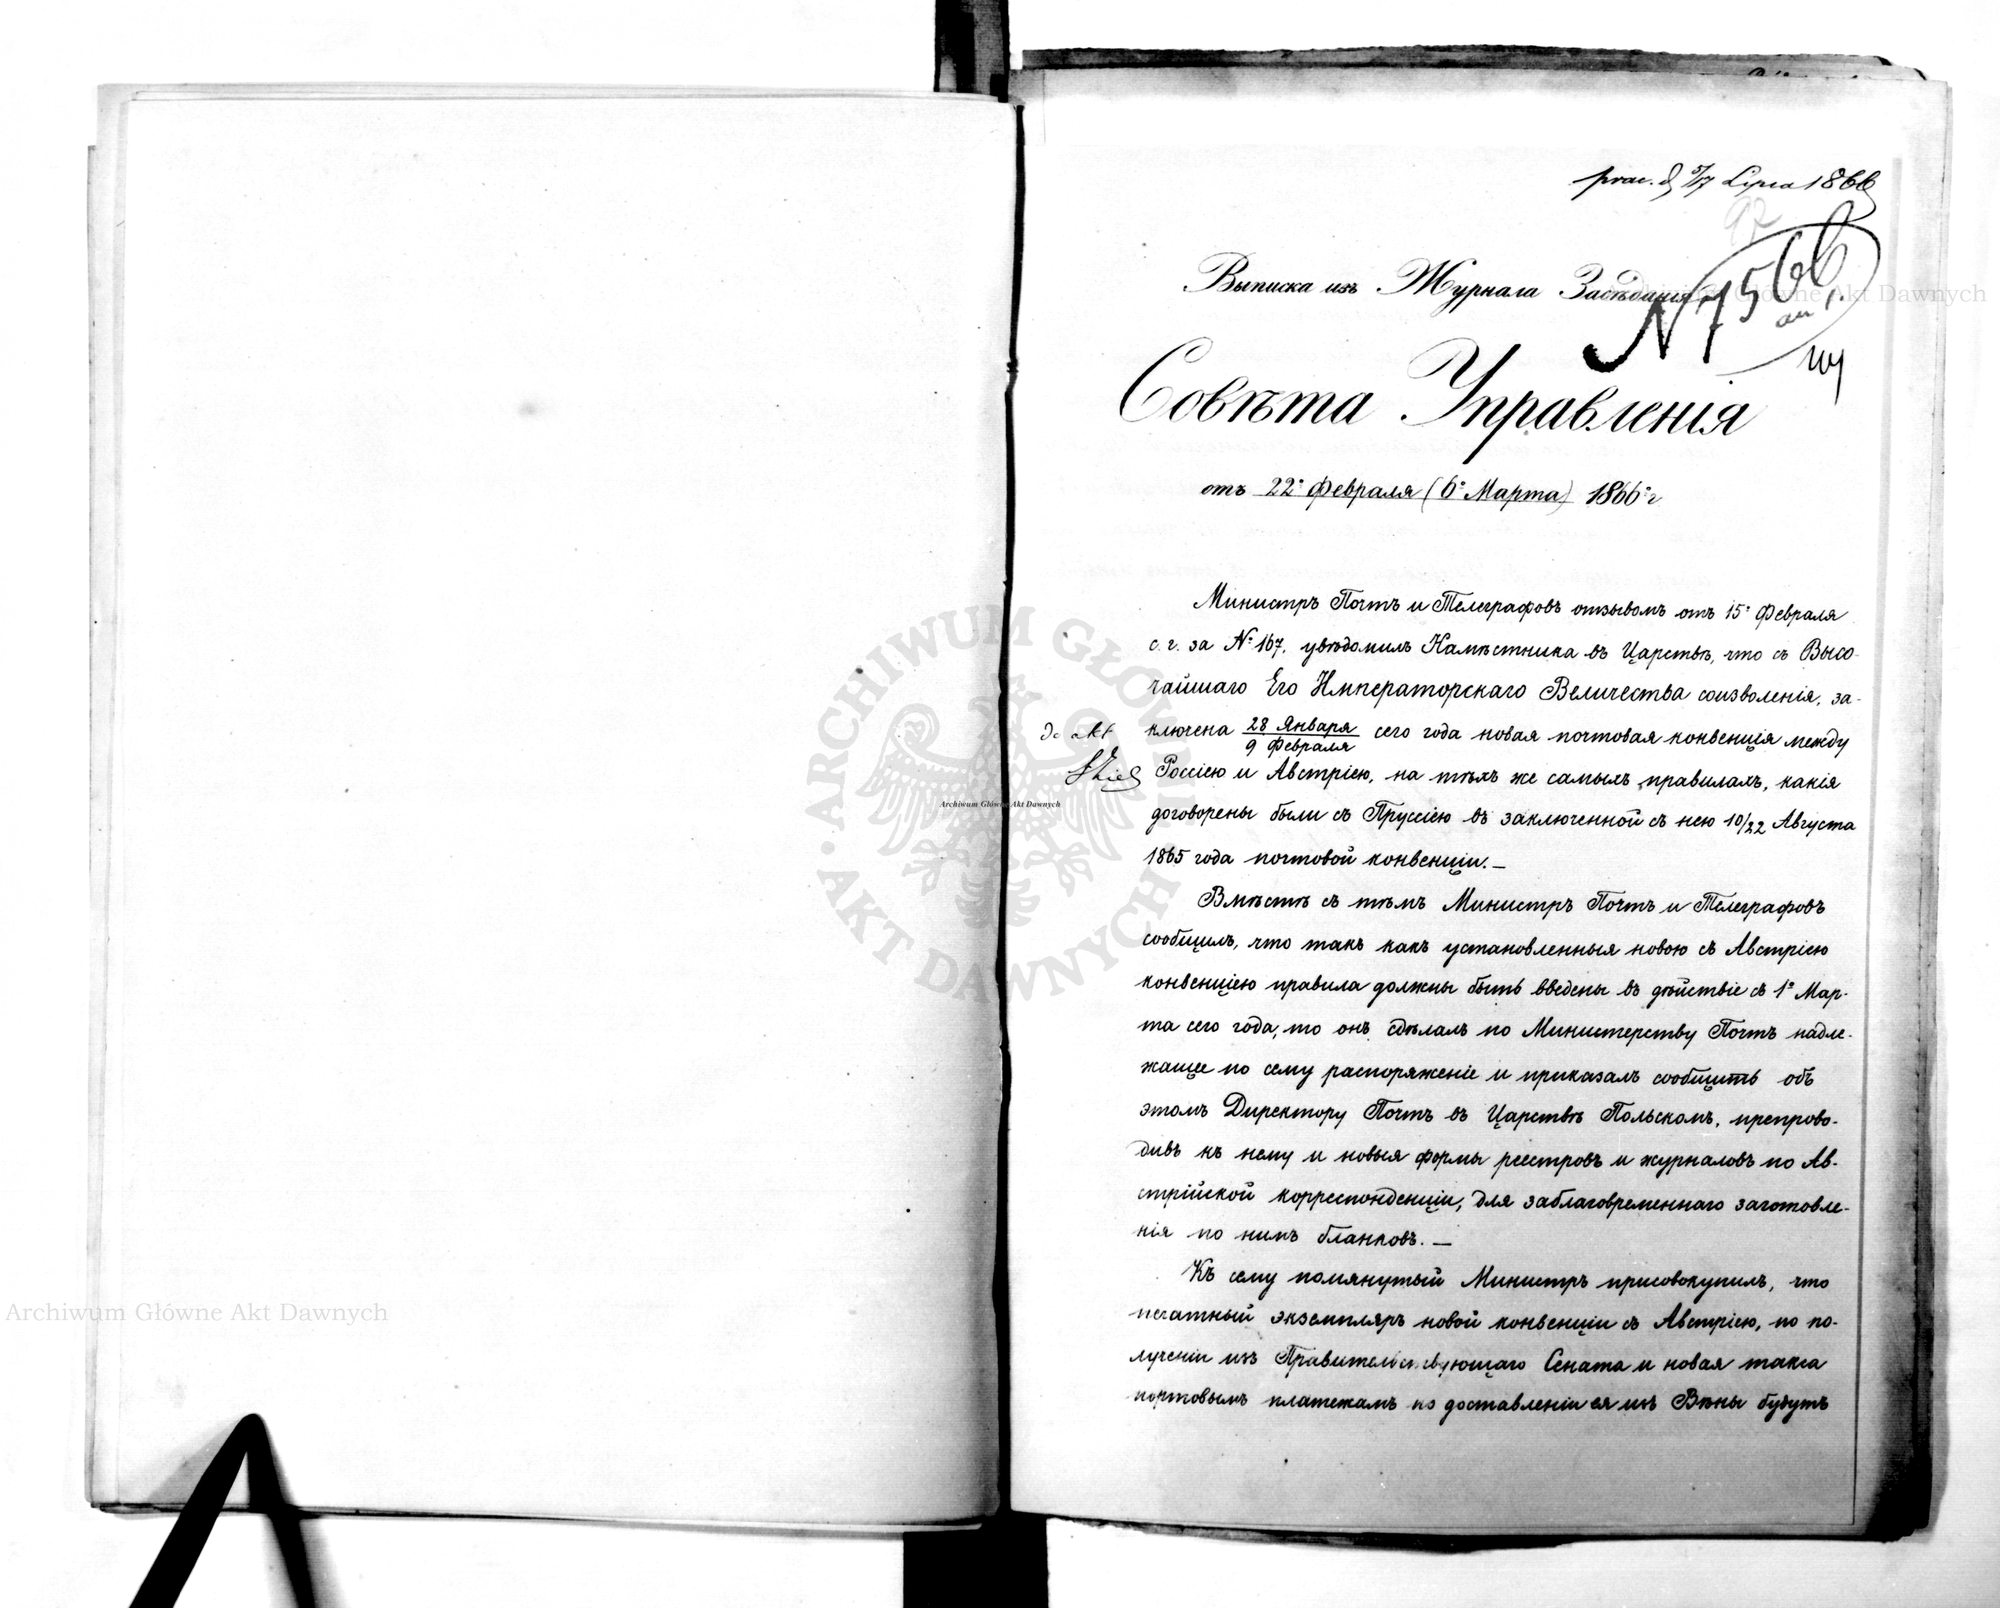 prac. d. 5/17 Lipca 1866
97
Выписка изъ Журнала Засѣданія
N 7566
Совѣта Управленія
отъ 22го Февраля (6го Марта) 1866го г.
Министръ Почтъ и Телеграфовъ отзывомъ отъ 15го Февраля
с. г. за № 167, увѣдомилъ Намѣстника въ Царствѣ, что съ Высо-
чайшаго Его Императорскаго Величества соизволенія, за-
ключена 28 Января / 9 Февраля сего года новая почтовая конвенція между
Do akt
Россіею и Австріею, на тѣхъ же самыхъ правилахъ, какія
договорены были съ Пруссіею въ заключенной съ нею 10/22 Августа
1865 года почтовой конвенціи. —
Вмѣстѣ съ тѣмъ Министръ Почтъ и Телеграфовъ
сообщилъ, что такъ какъ установленныя новою съ Австріею
конвенціею правила должны быть введены въ дѣйствіе съ 1го Мар-
та сего года, то онъ сдѣлалъ по Министерству Почтъ надле-
жащее по сему распоряженіе и приказалъ сообщить объ
этомъ Директору Почтъ въ Царствѣ Польскомъ, препрово-
дивъ къ нему и новыя формы реестровъ и журналовъ по Ав-
стрійской корреспонденціи, для заблаговременнаго заготовле-
нія по нимъ бланковъ. —
Къ сему помянутый Министръ присовокупилъ, что
печатный экземпляръ новой конвенціи съ Австріею, по по-
лученіи изъ Правительствующаго Сената и новая такса
портовымъ платежамъ по доставленіи ея изъ Вѣны будутъ
Archiwum Główne Akt Dawnych
ARCHIWUM GŁÓWNE AKT DAWNYCH
Archiwum Główne Akt Dawnych
Archiwum Główne Akt Dawnych